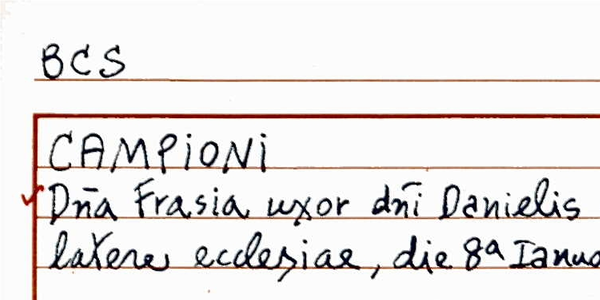 BCS
CAMPIONI
Dn̄a Frasia uxor dn̄i Danielis
latere ecclesiae, die 8ª Ianua